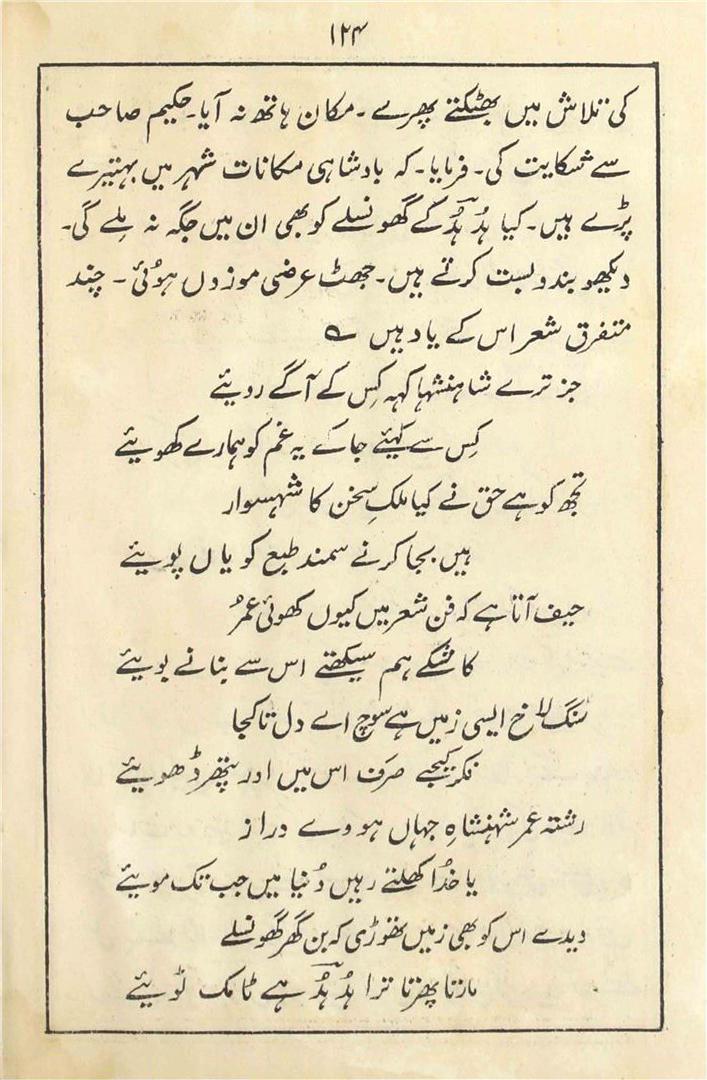 ۱۲۴
کی تلاش میں بھٹکتے پھرے۔ مکان ہاتھ نہ آیا۔ حکیم صاحب
سے شکایت کی۔ فرمایا۔ کہ بادشاہی مکانات شہر میں بہتیرے
پڑے ہیں۔ کیا ہُدہُد کے گھونسلے کو بھی ان میں جگہ نہ ملے گی۔
دیکھو بندوبست کرتے ہیں۔ جھٹ عرضی موزوں ہوئی ۔ چند
متفرق شعر اس کے یاد ہیں ؎
جز ترے شاہنشہا کہہ کِس کے آگے روئیے
کِس سے کہئیے جا کے یہ غم کو ہمارے کھوئیے
تجھ کو ہے حق نے کیا ملکِ سخن کا شہسوار
ہیں بجا کرنے سمند طبع کو یاں پوئیے
حیف آتا ہے کہ فن شعر میں کیوں کھوئی عمر
کاشکے ہم سیکھتے اس سے بنانے بوئیے
سنگلاخ ایسی زمیں ہے سوچ اے دل تا کجا
فکر کیجے صرف اس میں اور پتھر ڈھوئیے
رشتہ عمر شہنشاہِ جہاں ہووے دراز
یا خدُا کھلتے رہیں دُنیا میں جب تک موئیے
دیدے اس کو بھی زمیں تھوڑی کہ بن گھر گھونسلے
مارتا پھرتا ترا ہُدہُد ہے ٹامک ٹوئیے